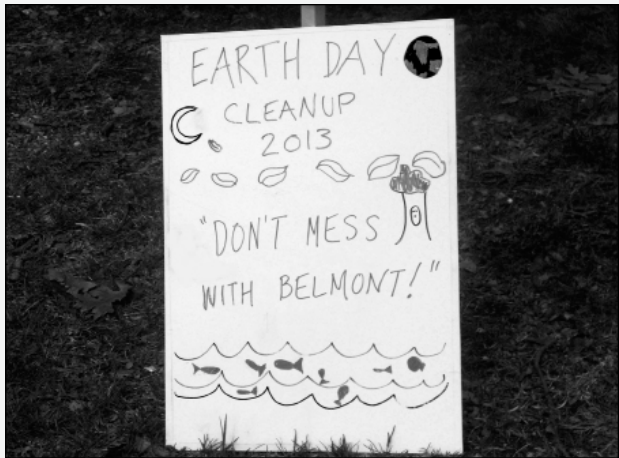 EARTH DAY
CLEANUP
2013
"DON'T MESS
WITH BELMONT!"